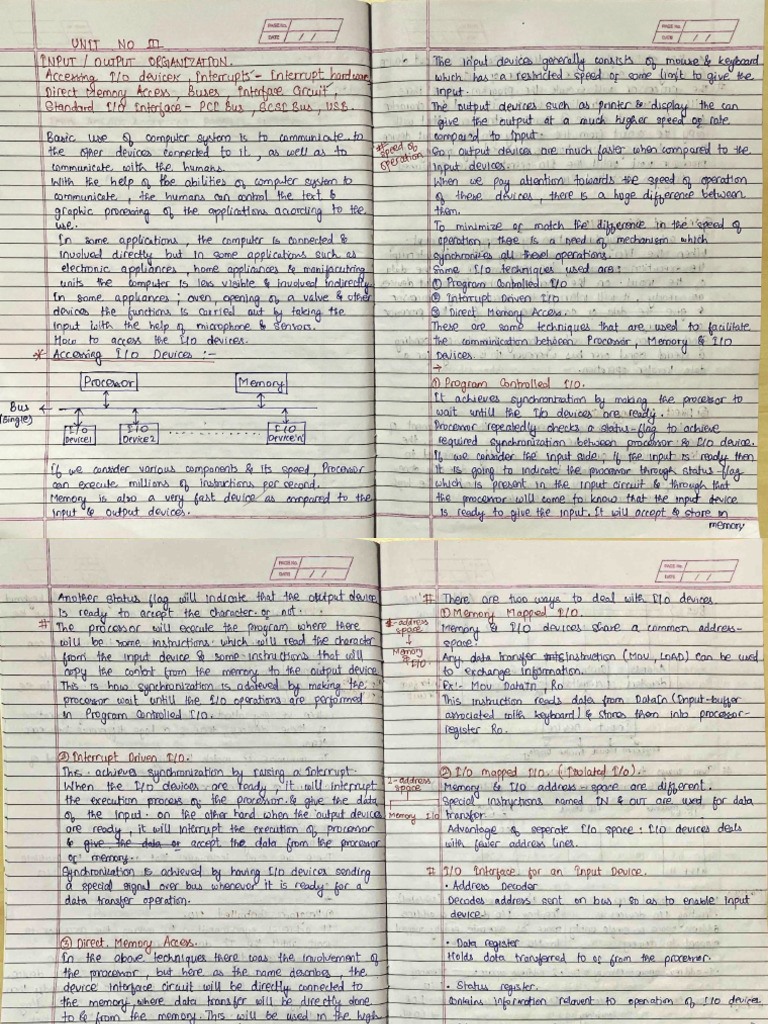 PAGE No.
DATE / /
UNIT NO III
INPUT / OUTPUT ORGANIZATION.
Accessing I/O devices, Interrupts - Interrupt hardware
Direct Memory Access, Buses, Interface Circuit,
Standard I/O Interface - PCI Bus, SCSI Bus, USB.
Basic use of computer system is to communicate to
the other devices connected to it, as well as to
communicate with the humans.
With the help of the abilities of computer system to
communicate, the humans can control the text &
graphic processing of the applications according to the
use.
In some applications, the computer is connected &
involved directly but in some applications such as
electronic appliances, home appliances & manifacutring
units the computer is less visible & involved indirectly.
In some appliances; oven, opening of a valve & other
devices the functions is carried out by taking the
input with the help of microphone & sensors.
How to access the I/O devices.
* Accessing I/O Devices :-
Processor
Memory
Bus
(Single)
I/O
Device1
I/O
Device2
I/O
Device'n'
If we consider various components & its speed, Processor
can execute millions of instructions per second.
Memory is also a very fast device as compared to the
input & output devices.
PAGE No.
DATE / /
The input devices generally consists of mouse & keyboard
which has a restricted speed or some limit to give the
input.
The output devices such as printer & display the can
give the output at a much higher speed or rate
compared to input.
# speed of
operation
So, output devices are much faster when compared to the
input devices.
When we pay attention towards the speed of operation
of these devices, there is a huge difference between
them.
To minimize or match the difference in the speed of
operation, there is a need of mechanism which
synchronizes all these operations.
Some I/O techniques used are:
① Program Controlled I/O
② Interrupt Driven I/O
③ Direct Memory Access.
These are some techniques that are used to facilitate
the communication between Processor, Memory & I/O
Devices.
→
① Program Controlled I/O.
It achieves synchronization by making the processor to
wait untill the I/o devices are ready.
Processor repeatedly checks a status-flag to achieve
required synchronization between processor & I/O device.
If we consider the input side; if the input is ready then
it is going to indicate the processor through status-flag
which is present in the input circuit & through that
the processor will come to know that the input device
is ready to give the input. It will accept & store in
memory
PAGE No.
DATE / /
Another status flag will indicate that the output device
is ready to accept the character or not.
# The processor will execute the program where there
will be some instructions which will read the character
from the input device & some instructions that will
copy the content from the memory to the output device
This is how synchronization is achieved by making the
processor wait untill the I/O operations are performed
in Program Controlled I/O.
② Interrupt Driven I/O.
This achieves synchronization by raising a Interrupt.
When the I/O devices are ready, it will interrupt
the execution process of the processor & give the data
of the input. on the other hand when the output devices
are ready, it will interrupt the execution of processor
& give the data or accept the data from the processor
or memory.
Synchronization is achieved by having I/O devices sending
a special signal over bus whenever it is ready for a
data transfer operation.
③ Direct Memory Access.
In the above techniques there was the involvement of
the processor, but here as the name describes, the
device interface circuit will be directly connected to
the memory where data transfer will be directly done
to & from the memory. This will be used in the high
PAGE No.
DATE / /
# There are two ways to deal with I/O devices.
① Memory Mapped I/O.
1-address
space
Memory
& I/O
Memory & I/O devices share a common address-
space.
Any data transfer instruction (MOV, LOAD) can be used
to exchange information.
Ex:- Mov DataIn, Ro
This instruction reads data from DataIn (Input-buffer
associated with keyboard) & stores them into processor-
register Ro.
② I/O mapped I/O. (Isolated I/o).
2-address
space
Memory I/O
Memory & I/O address-space are different.
Special instructions named IN & OUT are used for data
transfer.
Advantage of seperate I/o space: I/O devices deals
with fewer address lines.
# I/O Interface for an Input Device.
• Address Decoder
Decodes address sent on bus, so as to enable input
device.
• Data register
Holds data transferred to or from the processor.
• Status register.
contains information relevent to operation of I/O devices.